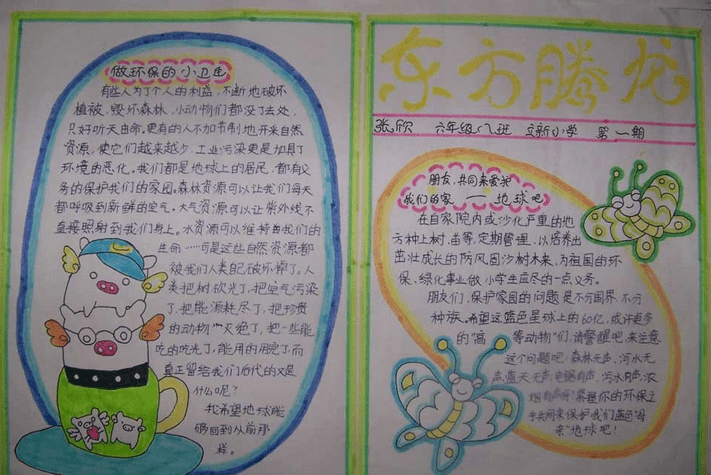 做环保的小卫士
有些人为了个人的利益,不断地破坏
植被,毁坏森林,小动物们都没了去处,
只好听天由命。更有的人不加节制地开来自然
资源,使它们越来越少。工业污染更是加具了
环境的恶化。我们都是地球上的居民,都有义
务的保护我们的家园。森林资源可以让我们每天
都呼吸到新鲜的空气。大气资源可以让紫外线不
直接照射到我们身上。水资源可以维持着我们的
生命……可是这些自然资源都
被我们人类自己破坏掉了。人
类把树砍光了,把空气污染
了,把能源耗尽了,把珍贵
的动物广灭绝了,把一些能
吃的吃光了,能用的用完了,而
真正留给我们后代的又是
什么呢?
我希望地球能
够回到从前那
样。
东方腾龙
张欣 六年级八班 立新小学 第一期
朋友,共同来爱我
我们的家——地球吧
在自家院内或沙化严重的地
方种上树、苗等,定期管理,以培养出
茁壮成长的防风固沙树木来,为祖国的环
保、绿化事业做小学生应尽的一点义务。
朋友们,保护家园的问题是不分国界,不分
种族。希望这蓝色星球上的60亿,或许更多
的"高等动物"们,请警醒吧,来注意
这个问题吧:森林无声,河水无
声,蓝天无声;电锯有声,污水有声,浓
烟有声啊!累握你的环保之
手共同来保护我们蓝色"母
亲"地球吧!